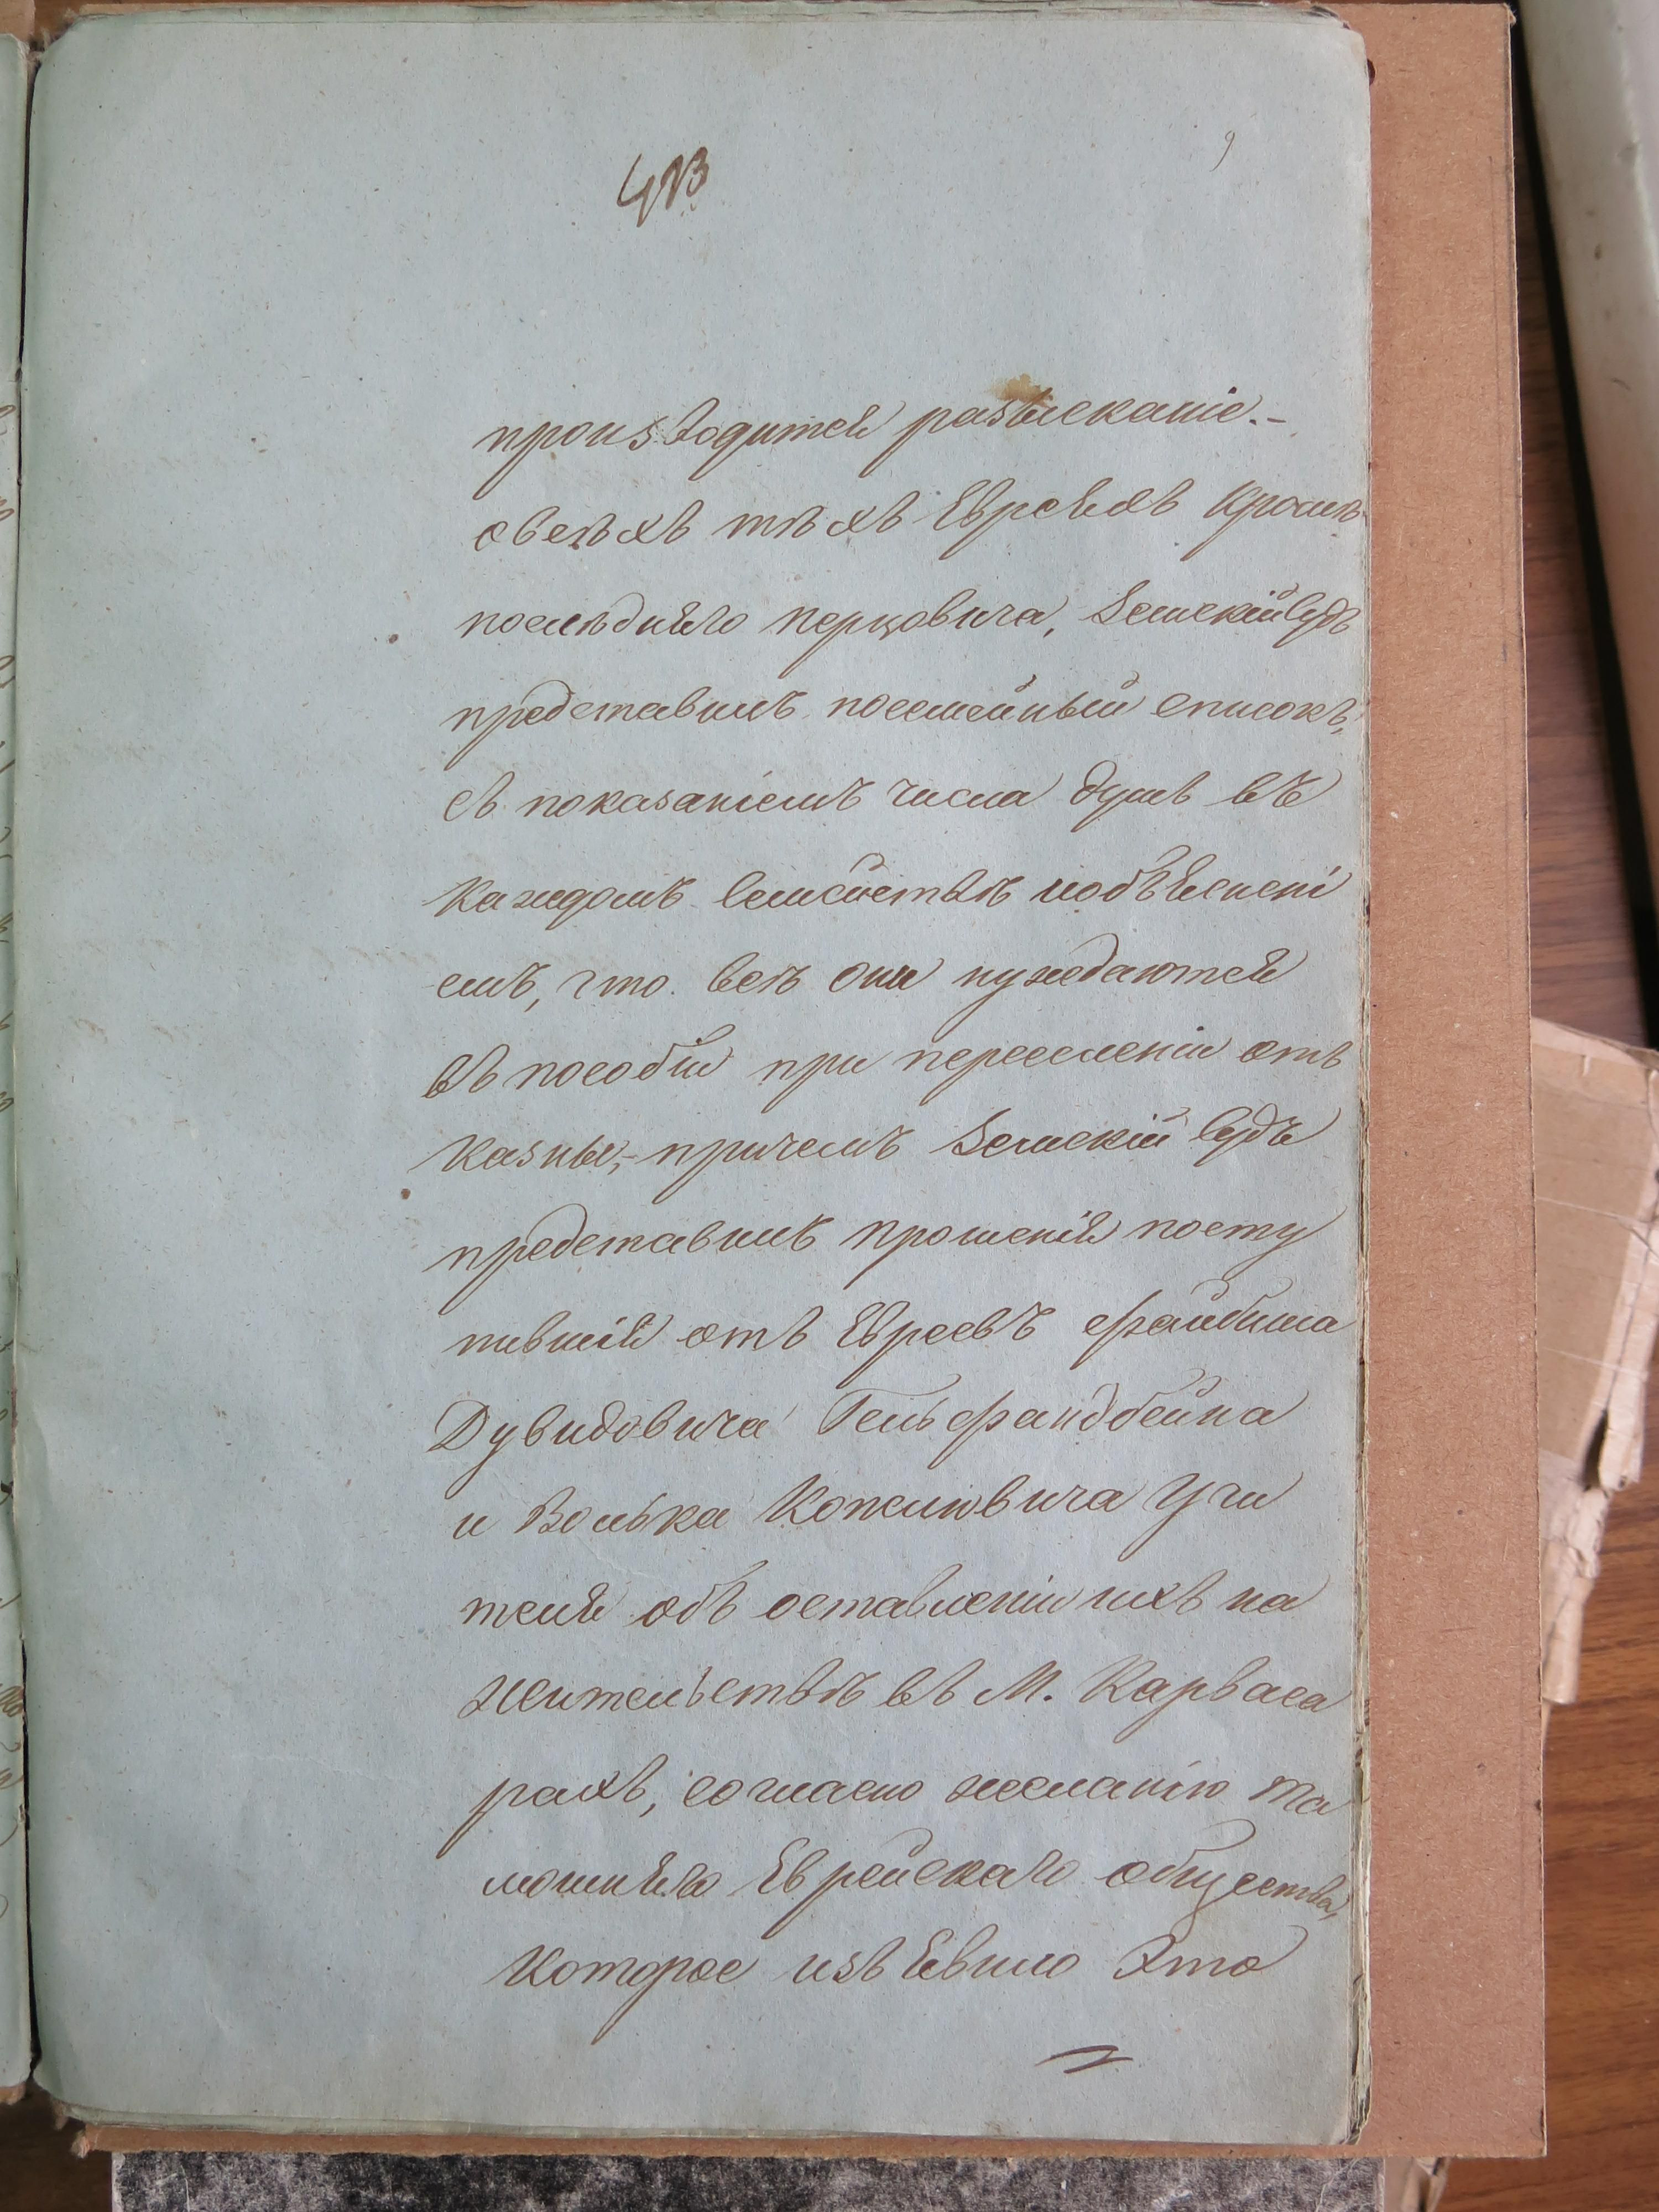 9
производится разысканіе.-
о всѣхъ тѣхъ Евреяхъ кромѣ
послѣдняго Перцовича, Земскій Судъ
представилъ посемейный списокъ,
съ показаніемъ числа душъ въ
каждомъ семействѣ и объясненi
емъ, что всѣ они нуждаются
въ пособіи при переселеніи отъ
казны,- причемъ Земскій Судъ
представилъ прошенія посту
пившія отъ Евреевъ Файбиша
Дувидовича Гельфандбейна
и Волька Копелювича Учи
теля объ оставленіи ихъ на
жительствѣ въ М. Карваса
рахъ, согласно желанію та
мошняго Еврейскаго общества,
которое изъявило Это